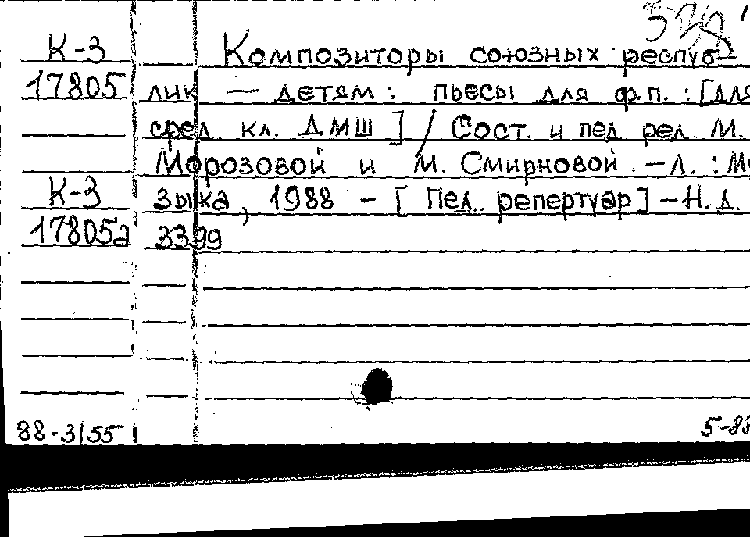 К-3 Композиторы союзных респуб-
17805 лик — детям: пьесы для ф.п.: [для
сред. кл. ДМШ] / Сост. и пед. ред. М.
Морозовой и М. Смирновой. - Л.: Му
К-3 зыка, 1988 - [Пед. репертуар] - Н.д.
17805а 3399
88-3155 5-88